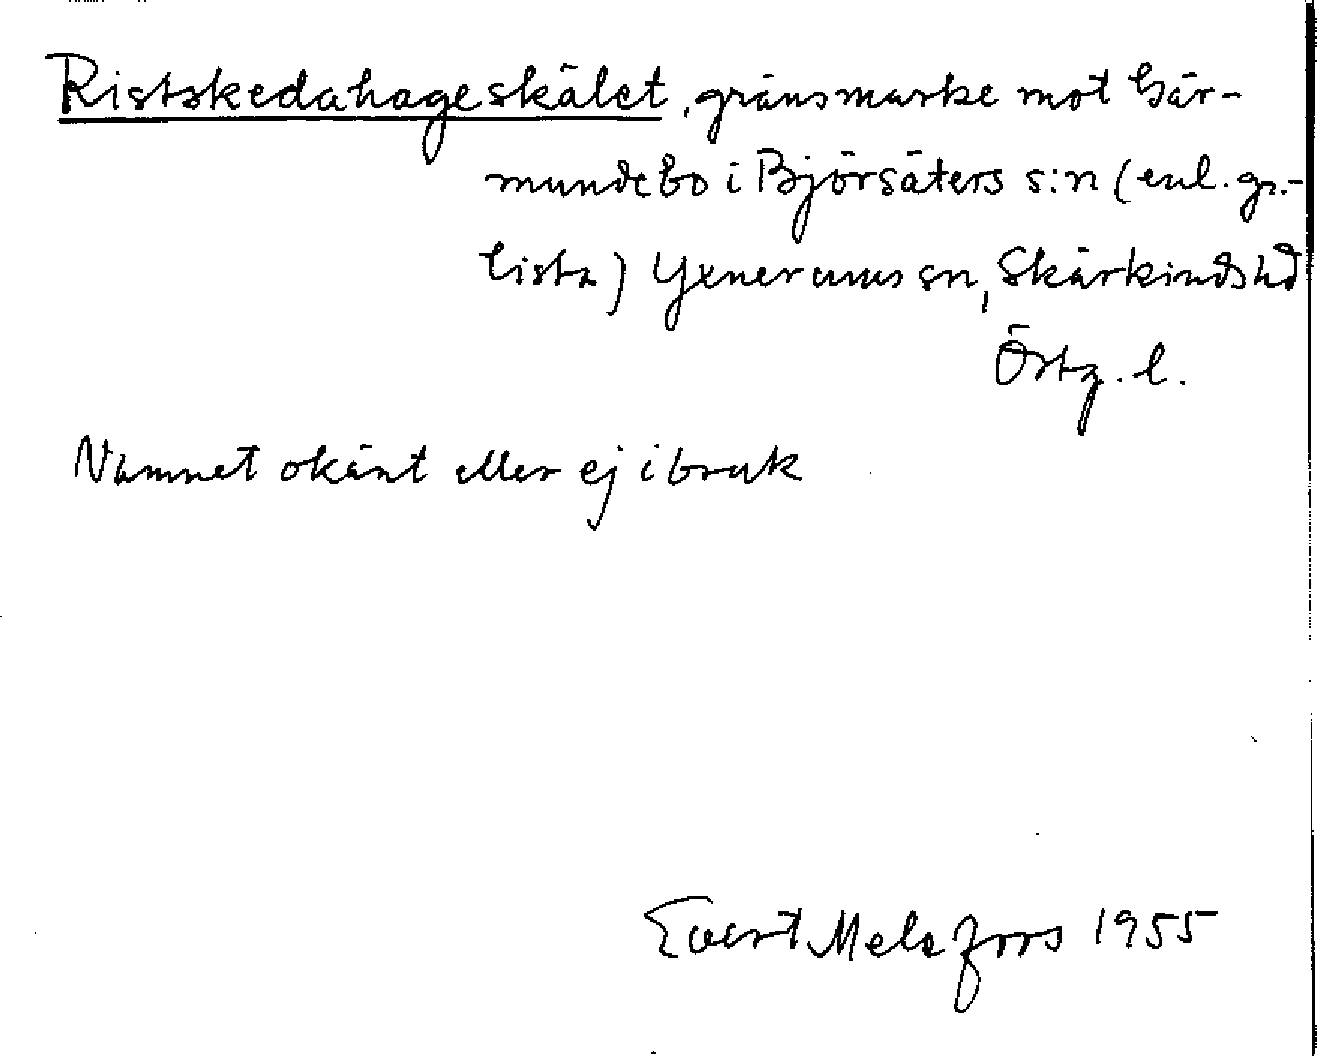 Ristskedahageskälet, gränsmärke mot Går-
mundebo i Björsäters s:n (enl. gr.-
lista) Yxnerums sn, Skärkinds hd
Östg. l.
Namnet okänt eller ej i bruk
Evert Melefors 1955